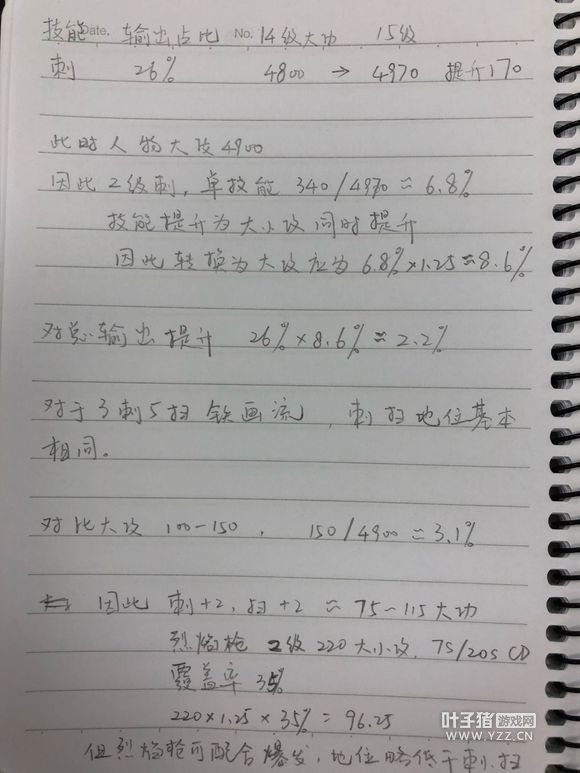 技能 Date. 输出占比 No. 14级大功 15级
刺 26% 4800 → 4970 提升170
此时人物大攻4900
因此2级刺,单技能 340/4970≈6.8%
技能提升为大小攻同时提升
因此转换为大攻应为 6.8%×1.25≈8.6%
对总输出提升 26%×8.6%≈2.2%
对于3刺5扫铁画流,刺扫地位基本
相同。
对比大攻 100-150, 150/4900≈3.1%
因此 刺+2,扫+2 ≈ 75~115大功
烈焰枪 2级 220大小攻, 7S/20S CD
覆盖率 35%
220×1.25×35%=96.25
但烈焰枪可配合爆发,地位略低于刺.扫
叶子猪游戏网
WWW.YZZ.CN